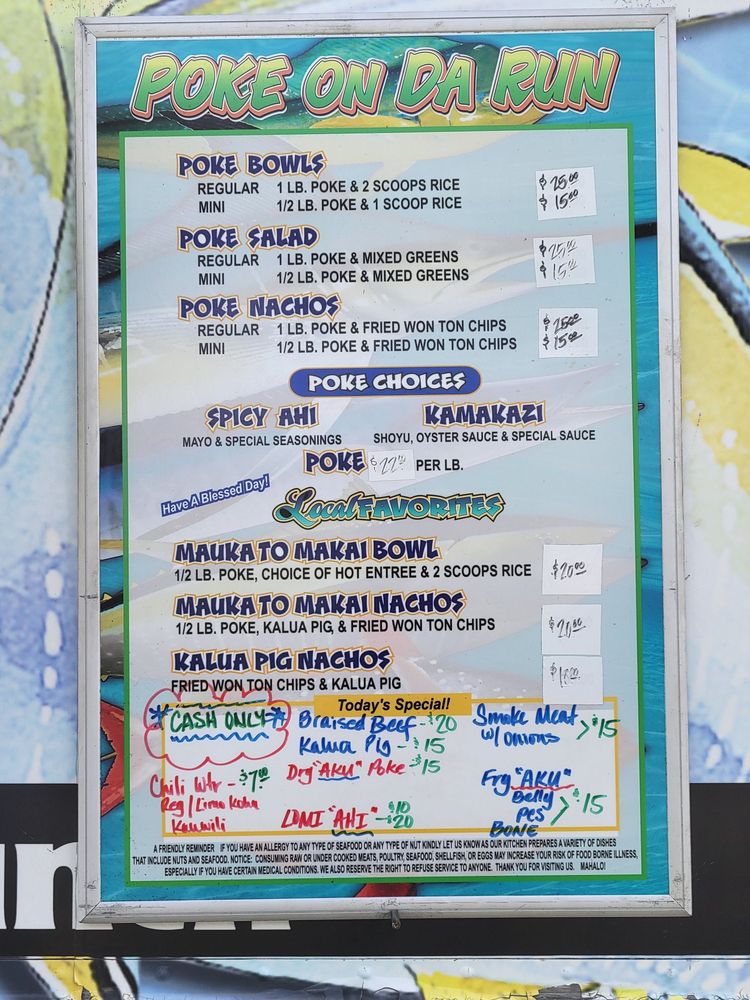 POKE ON DA RUN
POKE BOWLS
REGULAR 1 LB. POKE & 2 SCOOPS RICE $25.00
MINI 1/2 LB. POKE & 1 SCOOP RICE $15.00
POKE SALAD
REGULAR 1 LB. POKE & MIXED GREENS $25.00
MINI 1/2 LB. POKE & MIXED GREENS $15.00
POKE NACHOS
REGULAR 1 LB. POKE & FRIED WON TON CHIPS $25.00
MINI 1/2 LB. POKE & FRIED WON TON CHIPS $15.00
POKE CHOICES
SPICY AHI KAMAKAZI
MAYO & SPECIAL SEASONINGS SHOYU, OYSTER SAUCE & SPECIAL SAUCE
POKE $22.00 PER LB.
Have A Blessed Day!
Local FAVORITES
MAUKA TO MAKAI BOWL
1/2 LB. POKE, CHOICE OF HOT ENTREE & 2 SCOOPS RICE $20.00
MAUKA TO MAKAI NACHOS
1/2 LB. POKE, KALUA PIG, & FRIED WON TON CHIPS $20.00
KALUA PIG NACHOS
FRIED WON TON CHIPS & KALUA PIG
Today's Special!
*CASH ONLY*
Braised Beef - $20
Kalua Pig - $15
Dry "AKU" Poke - $15
Smoke Meat
w/ onions > $15
Chili Wtr - $7.00
Reg/Limu Kohu
Kauwili
LOMI "AHI" - $10
$20
Fry "AKU"
Belly
PCS > $15
BONE
A FRIENDLY REMINDER IF YOU HAVE AN ALLERGY TO ANY TYPE OF SEAFOOD OR ANY TYPE OF NUT KINDLY LET US KNOW AS OUR KITCHEN PREPARES A VARIETY OF DISHES
THAT INCLUDE NUTS AND SEAFOOD. NOTICE: CONSUMING RAW OR UNDER COOKED MEATS, POULTRY, SEAFOOD, SHELLFISH, OR EGGS MAY INCREASE YOUR RISK OF FOOD BORNE ILLNESS,
ESPECIALLY IF YOU HAVE CERTAIN MEDICAL CONDITIONS. WE ALSO RESERVE THE RIGHT TO REFUSE SERVICE TO ANYONE. THANK YOU FOR VISITING US. MAHALO!